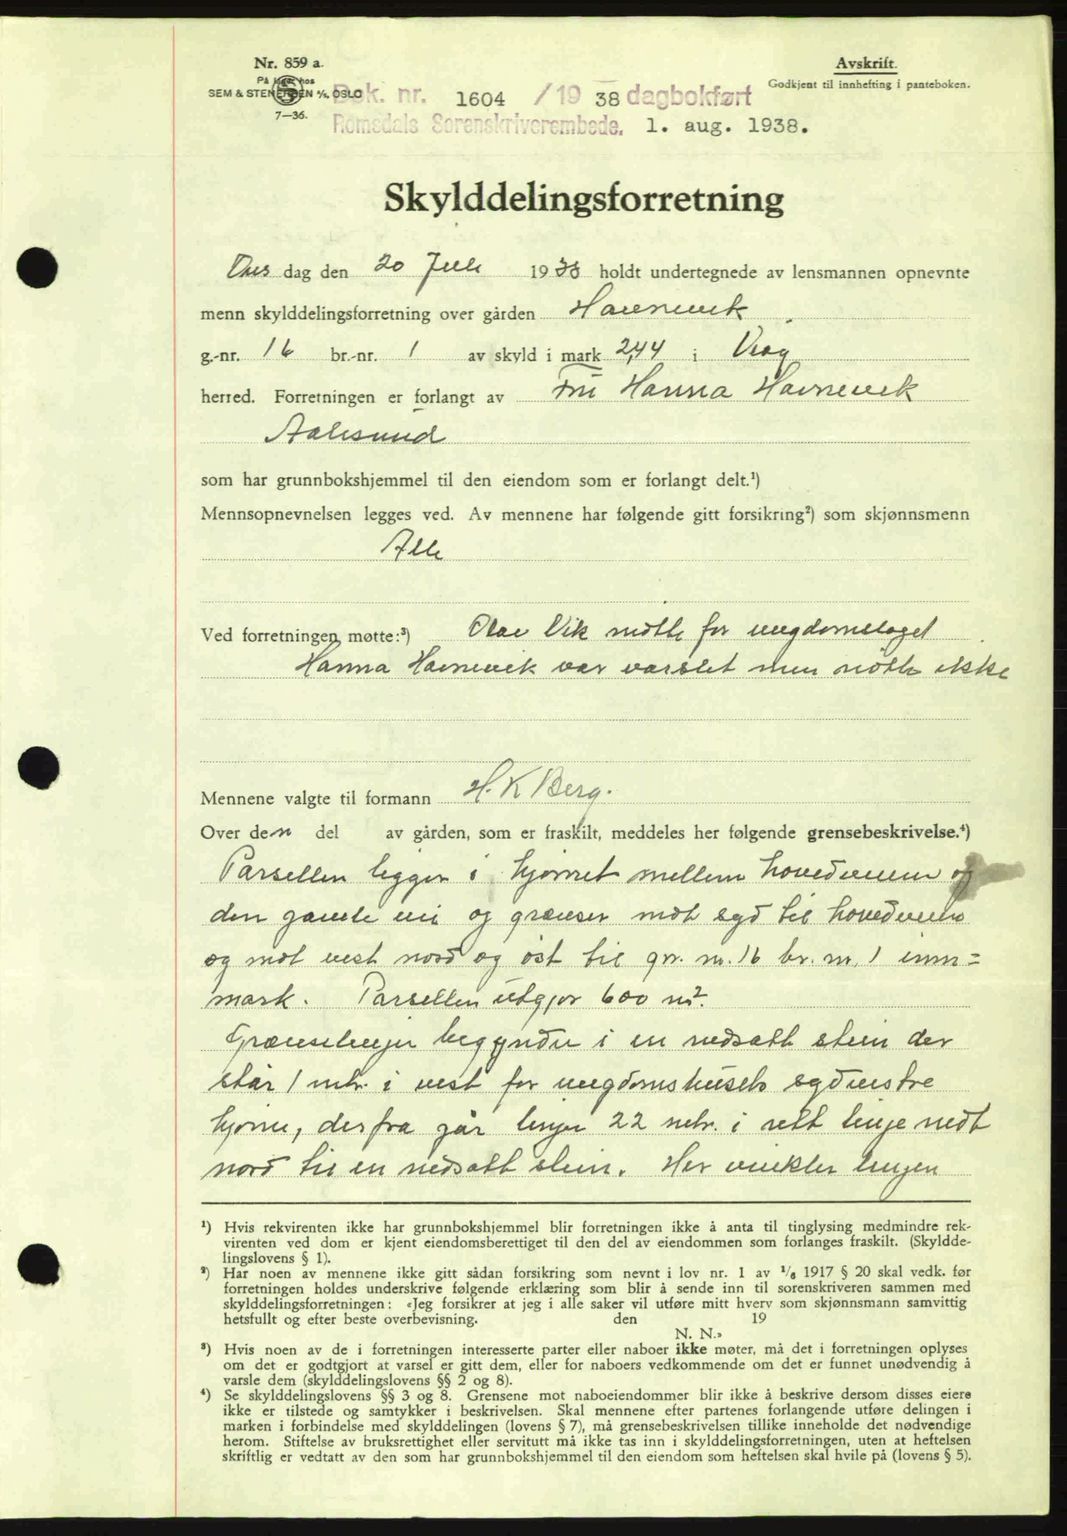 Nr. 859 a.
På lager hos
SEM & STENERSEN A/S. OSLO
7—36.
Avskrift.
Godkjent til innhefting i panteboken.
Dok. nr. 1604 /19 38 dagbokført
Romsdals Sorenskriverembede. 1. aug. 1938.
Skylddelingsforretning
Ons dag den 20 Juli 1938 holdt undertegnede av lensmannen opnevnte
menn skylddelingsforretning over gården Havnevik
g.-nr. 16 br.-nr. 1 av skyld i mark 2,44 i
herred. Forretningen er forlangt av Fru Hanna Havnevik
Aalesund
som har grunnbokshjemmel til den eiendom som er forlangt delt.¹)
Mennsopnevnelsen legges ved. Av mennene har følgende gitt forsikring²) som skjønnsmenn
Alle
Ved forretningen møtte:³) Olav Vik møtte for ungdomslaget
Hanna Havnevik var varslet men møtte ikke
Mennene valgte til formann H. K Berg.
Over den del av gården, som er fraskilt, meddeles her følgende grensebeskrivelse.⁴)
Parsellen ligger i hjørnet mellem hovedveien og
den gamle vei og grænser mot syd til hovedveien
og mot vest nord og øst til gr. nr. 16 br. nr. 1 inn=
mark. Parsellen utgjør 600 m².
Grænselinjen begynder i en nedsatt stein der
står 1 mtr. i vest for ungdomshusets sydvestre
hjørne, derfra går linjen 22 mtr. i rett linje mot
nord til en nedsatt stein. Her vinkler linjen
¹) Hvis rekvirenten ikke har grunnbokshjemmel blir forretningen ikke å anta til tinglysing medmindre rek-
virenten ved dom er kjent eiendomsberettiget til den del av eiendommen som forlanges fraskilt. (Skyldde-
lingslovens § 1).
²) Har noen av mennene ikke gitt sådan forsikring som nevnt i lov nr. 1 av 1/6 1917 § 20 skal vedk. før
forretningen holdes underskrive følgende erklæring som blir å sende inn til sorenskriveren sammen med
skylddelingsforretningen: «Jeg forsikrer at jeg i alle saker vil utføre mitt hverv som skjønnsmann samvittig
hetsfullt og efter beste overbevisning. den 19
N. N.»
³) Hvis noen av de i forretningen interesserte parter eller naboer ikke møter, må det i forretningen oplyses
om det er godtgjort at varsel er gitt dem, eller for naboers vedkommende om det er funnet unødvendig å
varsle dem (skylddelingslovens §§ 2 og 8).
⁴) Se skylddelingslovens §§ 3 og 8. Grensene mot naboeiendommer blir ikke å beskrive dersom disses eiere
ikke er tilstede og samtykker i beskrivelsen. Skal mennene efter partenes forlangende utføre delingen i
marken i forbindelse med skylddelingen (lovens § 7), må grensebeskrivelsen tillike inneholde det nødvendige
herom. Stiftelse av bruksrettighet eller servitutt må ikke tas inn i skylddelingsforretningen, uten at heftelsen
skriftlig er vedtatt av den som har grunnbokshjemmel til den eiendom som heftelsen skal hvile på (lovens § 5).